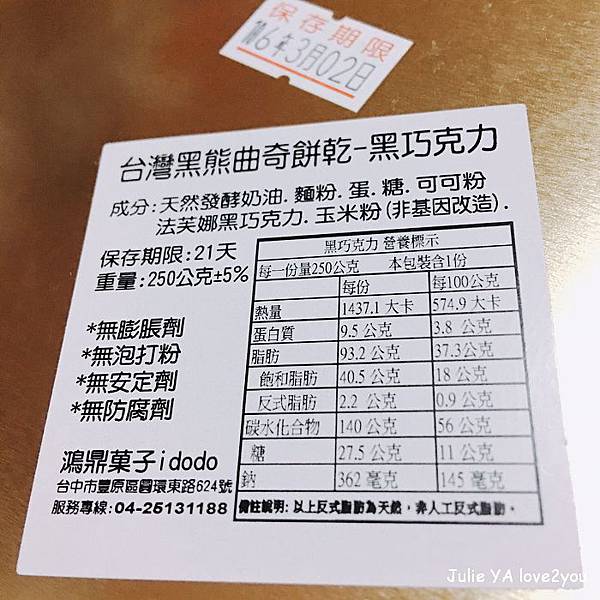 保存期限
106年3月02日
台灣黑熊曲奇餅乾-黑巧克力
成分:天然發酵奶油.麵粉.蛋.糖.可可粉
法芙娜黑巧克力.玉米粉(非基因改造).
保存期限:21天
重量:250公克±5%
*無膨脹劑
*無泡打粉
*無安定劑
*無防腐劑
鴻鼎菓子idodo
台中市豐原區圓環東路624號
服務專線:04-25131188
黑巧克力 營養標示
每一份量250公克 本包裝含1份
每份 每100公克
熱量 1437.1 大卡 574.9 大卡
蛋白質 9.5 公克 3.8 公克
脂肪 93.2 公克 37.3公克
飽和脂肪 40.5 公克 18 公克
反式脂肪 2.2 公克 0.9 公克
碳水化合物 140 公克 56 公克
糖 27.5 公克 11 公克
鈉 362 毫克 145 毫克
備註說明:以上反式脂肪為天然,非人工反式脂肪.
Julie YA love2you